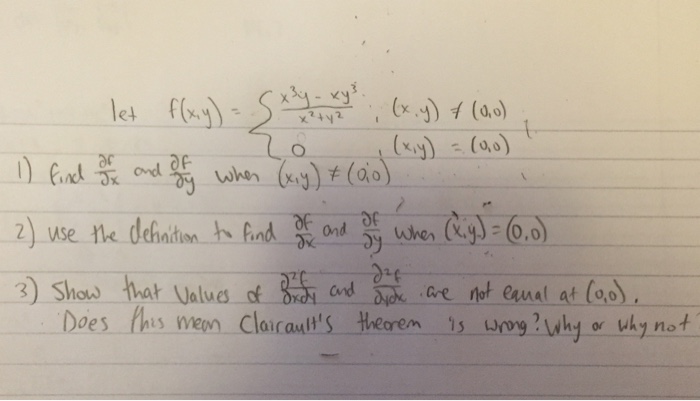 let f(x,y) = { x³y - xy³ / x²+y² , (x,y) ≠ (0,0)
0 , (x,y) = (0,0)
1) find ∂f/∂x and ∂f/∂y when (x,y) ≠ (0,0)
2) use the definition to find ∂f/∂x and ∂f/∂y when (x,y) = (0,0)
3) Show that values of ∂²f/∂x∂y and ∂²f/∂y∂x are not equal at (0,0).
Does this mean Clairault's theorem is wrong? Why or why not